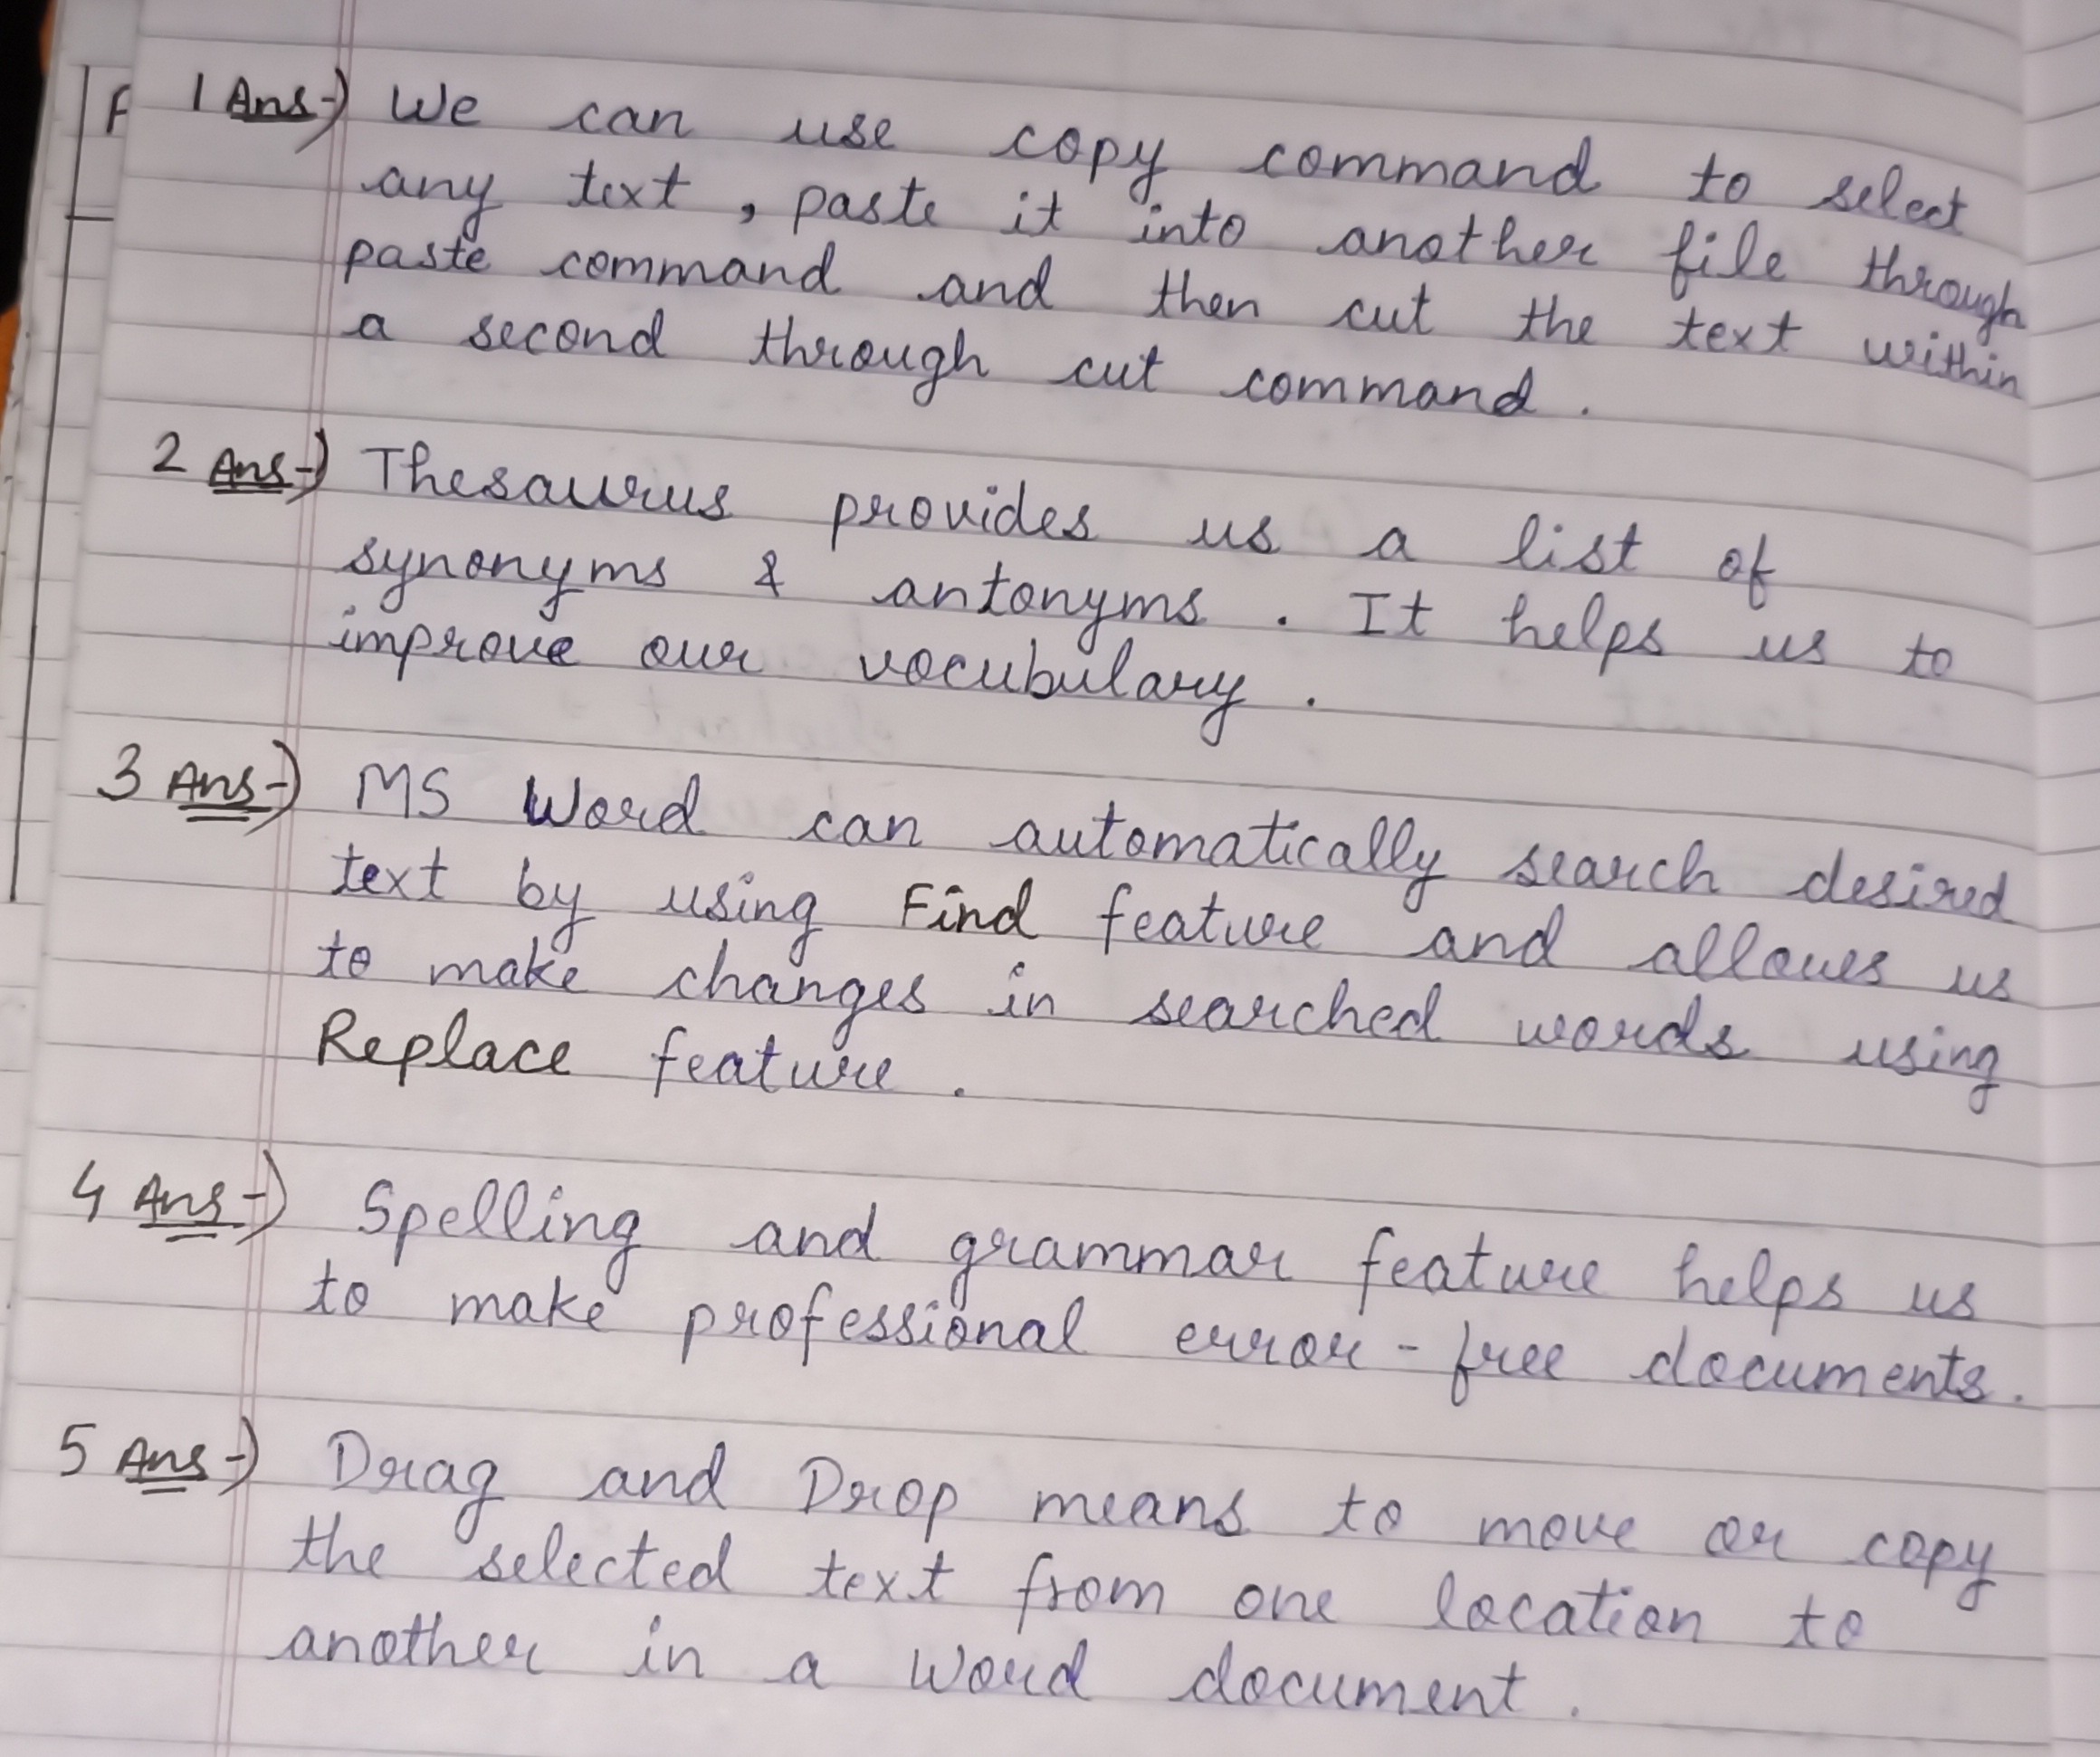 1 Ans-) We can use copy command to select
any text, paste it into another file through
paste command and then cut the text within
a second through cut command.
2 Ans-) Thesaurus provides us a list of
synonyms & antonyms. It helps us to
improve our vocubulary.
3 Ans-) MS Word can automatically search desired
text by using Find feature and allows us
to make changes in searched words using
Replace feature.
4 Ans-) Spelling and grammar feature helps us
to make professional error-free documents.
5 Ans-) Drag and Drop means to move or copy
the selected text from one location to
another in a Word document.